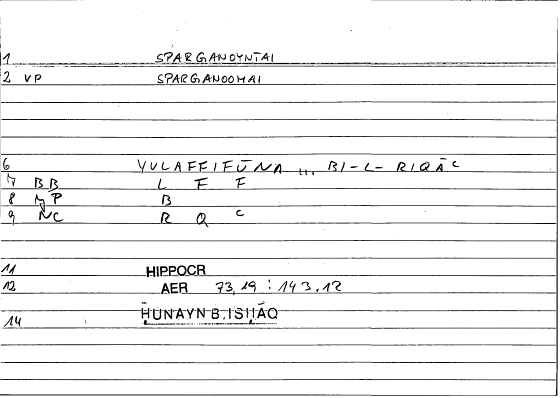 1 SPARGANOYNTAI
2 VP SPARGANOOMAI
6 YULAFFIFŪNA ... BI-L-RIQĀC
7 BB L F F
8 MP B
9 NC R Q C
11 HIPPOCR
12 AER 73,19 : 143.12
14 ḤUNAYN B.ISḤĀQ